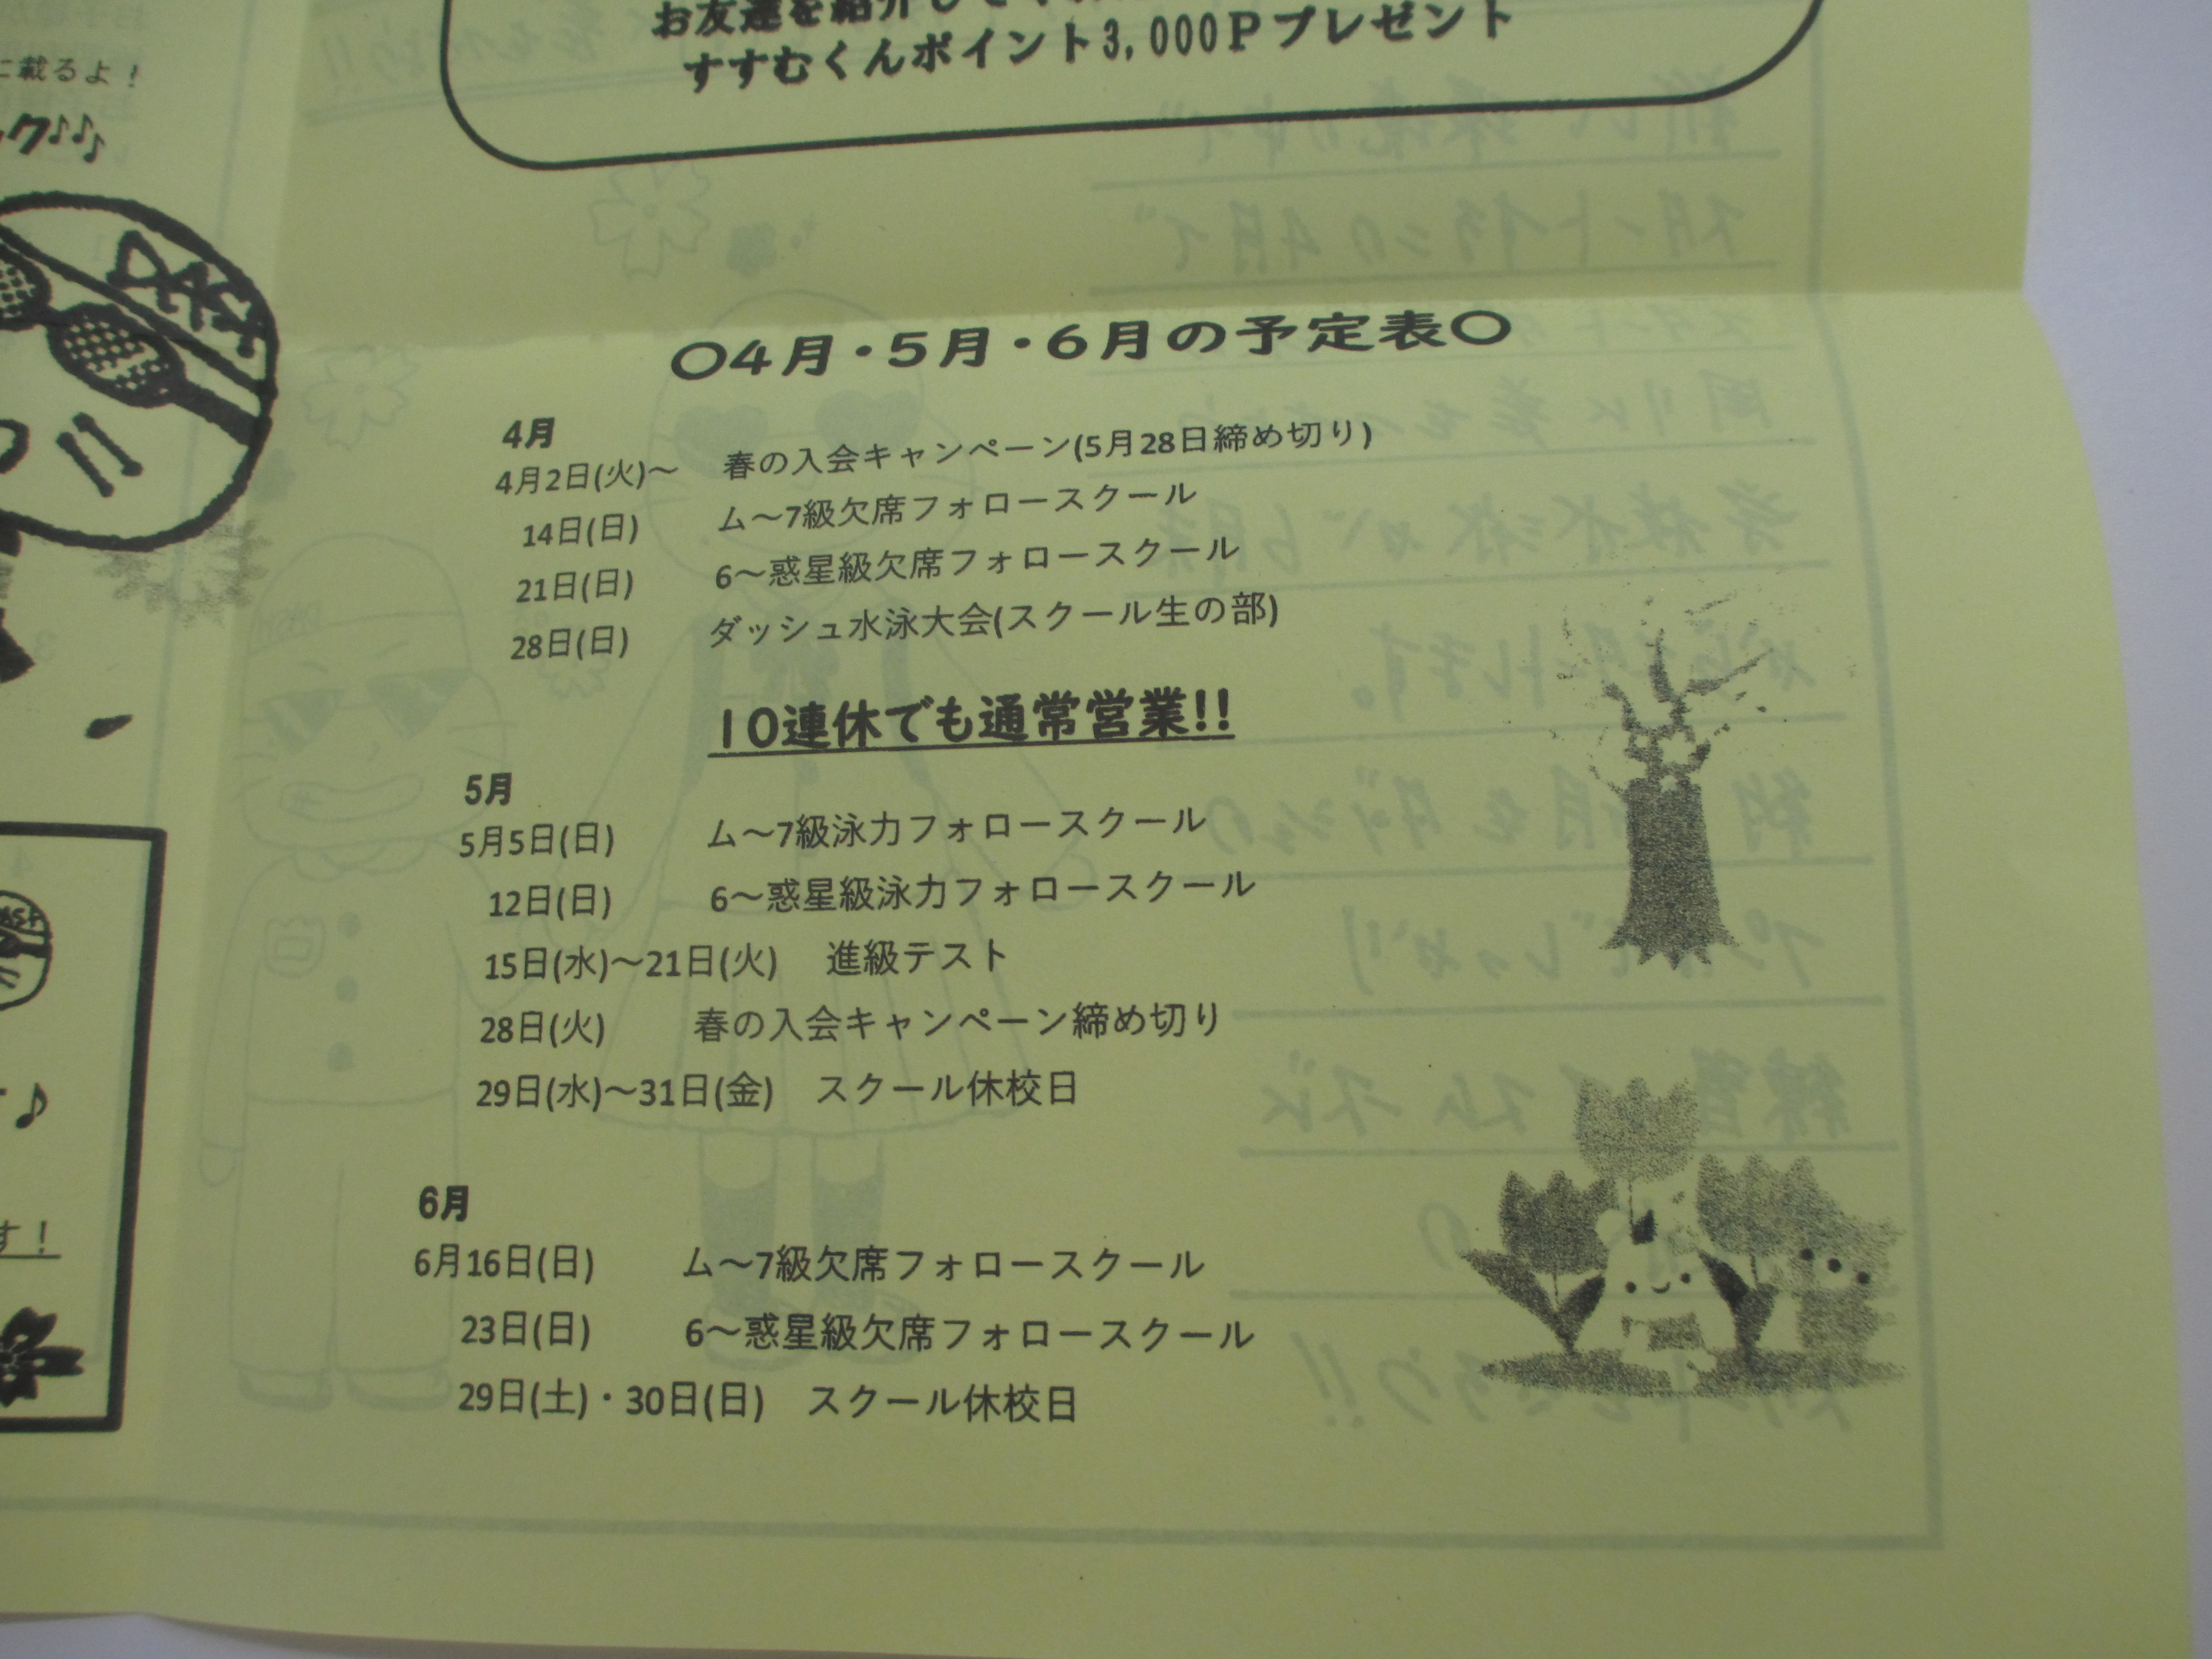 に載るよ！
ク♪♪♪
お友達を紹介して
すすむくんポイント3,000Pプレゼント
〇4月・5月・6月の予定表〇
4月
4月2日(火)～ 春の入会キャンペーン(5月28日締め切り)
14日(日) ム～7級欠席フォロースクール
21日(日) 6～惑星級欠席フォロースクール
28日(日) ダッシュ水泳大会(スクール生の部)
10連休でも通常営業!!
5月
5月5日(日) ム～7級泳力フォロースクール
12日(日) 6～惑星級泳力フォロースクール
15日(水)～21日(火) 進級テスト
28日(火) 春の入会キャンペーン締め切り
29日(水)～31日(金) スクール休校日
す！
6月
6月16日(日) ム～7級欠席フォロースクール
23日(日) 6～惑星級欠席フォロースクール
29日(土)・30日(日) スクール休校日